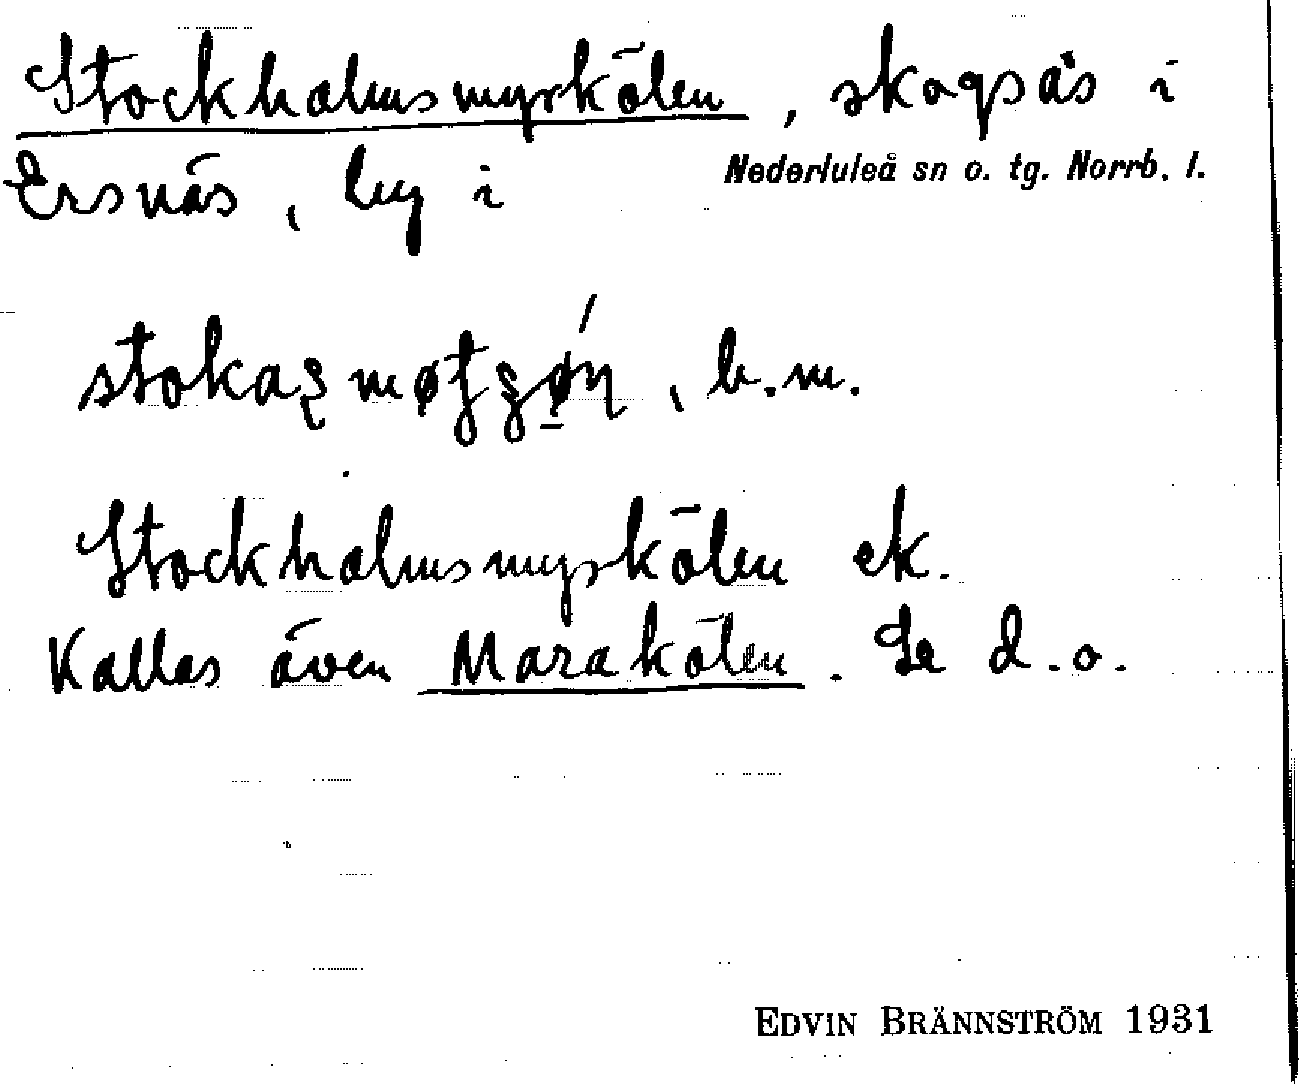 Stockholmsmyrkölen, skogsås i
Ersnäs, by i Nederluleå sn o. tg. Norrb. l.
b.m.
Stockholmsmyrkölen ek.
Kallas även Marakölen. Se d.o.
EDVIN BRÄNNSTRÖM 1931